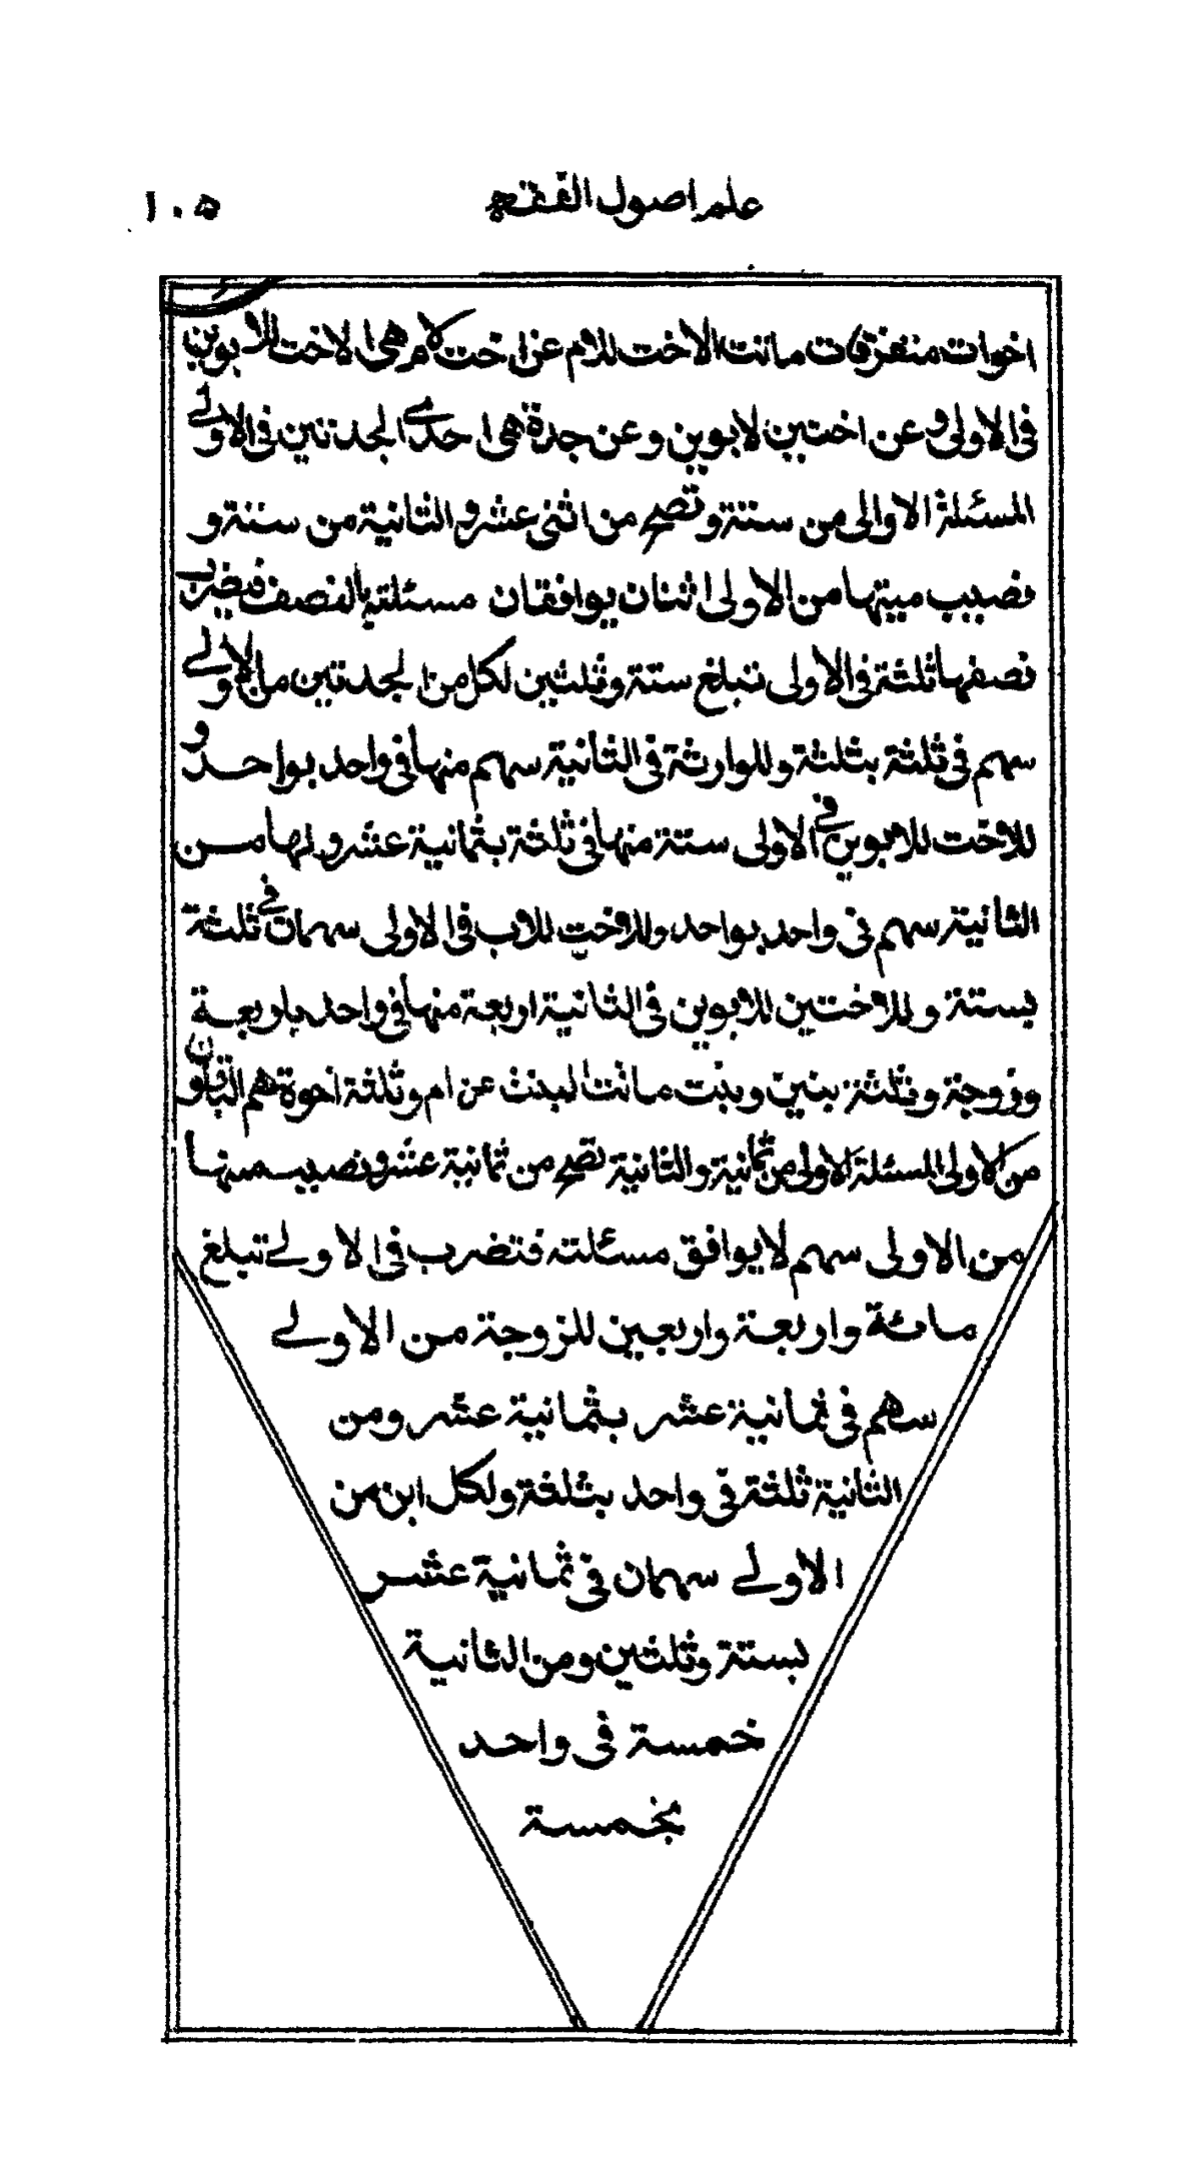 علم اصول الفقه ١٠٥
اخوات متفرقات ماتت الاخت للام عن اخت لام هى الاخت للابوين
فى الاولى وعن اختين لابوين وعن جدة هى احدى الجدتين فى الاولے
المسئلة الاولى من ستة وتصح من اثنى عشر و الثانية من ستة و
نصيب ميتها من الاولى اثنان يوافقان مسئلته بالنصف فيضرب
نصفها ثلثة فى الاولى تبلغ ستة وثلثين لكل من الجدتين من الاولے
سهم فى ثلثة بثلثة وللوارثة فى الثانية سهم منها فى واحد بواحد و
للاخت للابوين فى الاولى ستة منها فى ثلثة بثمانية عشر ولها من
الثانية سهم فى واحد بواحد وللاخت للاب فى الاولى سهمان فى ثلثة
بستة وللاختين للابوين فى الثانية اربعة منها فى واحد باربعة
وزوجة وثلثة بنين وبنت ماتت البنت عن ام وثلثة اخوة هم الباقون
من الاولى المسئلة الاولى من ثمانية والثانية تصح من ثمانية عشر ونصيب ميتها
من الاولى سهم لا يوافق مسئلته فتضرب فى الاولے تبلغ
مائة واربعة واربعين للزوجة من الاولے
سهم فى ثمانية عشر بثمانية عشر ومن
الثانية ثلثة فى واحد بثلثة ولكل ابن من
الاولے سهمان فى ثمانية عشر
بستة وثلثين ومن الثانية
خمسة فى واحد
بخمسة